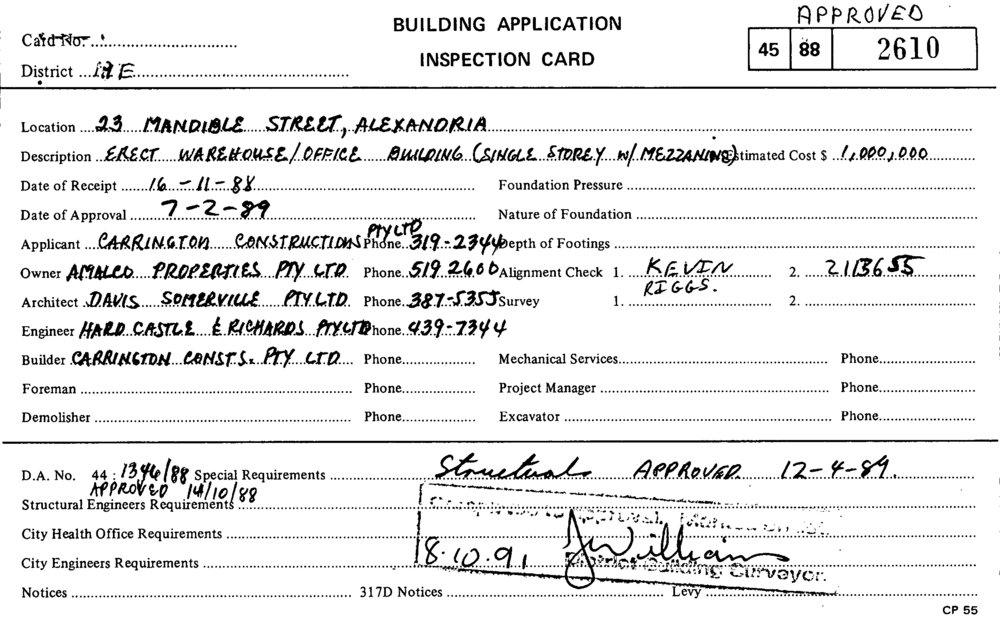 APPROVED
BUILDING APPLICATION
INSPECTION CARD
Card No.
45 88 2610
District HE
Location 23 MANDIBLE STREET, ALEXANDRIA
Description ERECT WAREHOUSE/OFFICE BUILDING (SINGLE STOREY w/ MEZZANINE) Estimated Cost $ 1,000,000
Date of Receipt 16-11-88 Foundation Pressure
Date of Approval 7-2-89 Nature of Foundation
Applicant CARRINGTON CONSTRUCTIONS PTY LTD Phone 319-2344 Depth of Footings
Owner AMALCO PROPERTIES PTY LTD Phone 519.2600 Alignment Check 1. KEVIN RIGGS. 2. 2113655
Architect DAVIS SOMERVILLE PTY LTD Phone 387-5355 Survey 1. 2.
Engineer HARD CASTLE & RICHARDS PTY LTD Phone 439-7344
Builder CARRINGTON CONSTS. PTY LTD Phone Mechanical Services Phone
Foreman Phone Project Manager Phone
Demolisher Phone Excavator Phone
D.A. No. 44 : 1346/88 Special Requirements Structurals APPROVED 12-4-89
APPROVED 14/10/88
Structural Engineers Requirements
City Health Office Requirements
City Engineers Requirements 8.10.91 J Williams
District Building Surveyor.
Notices 317D Notices Levy
CP 55